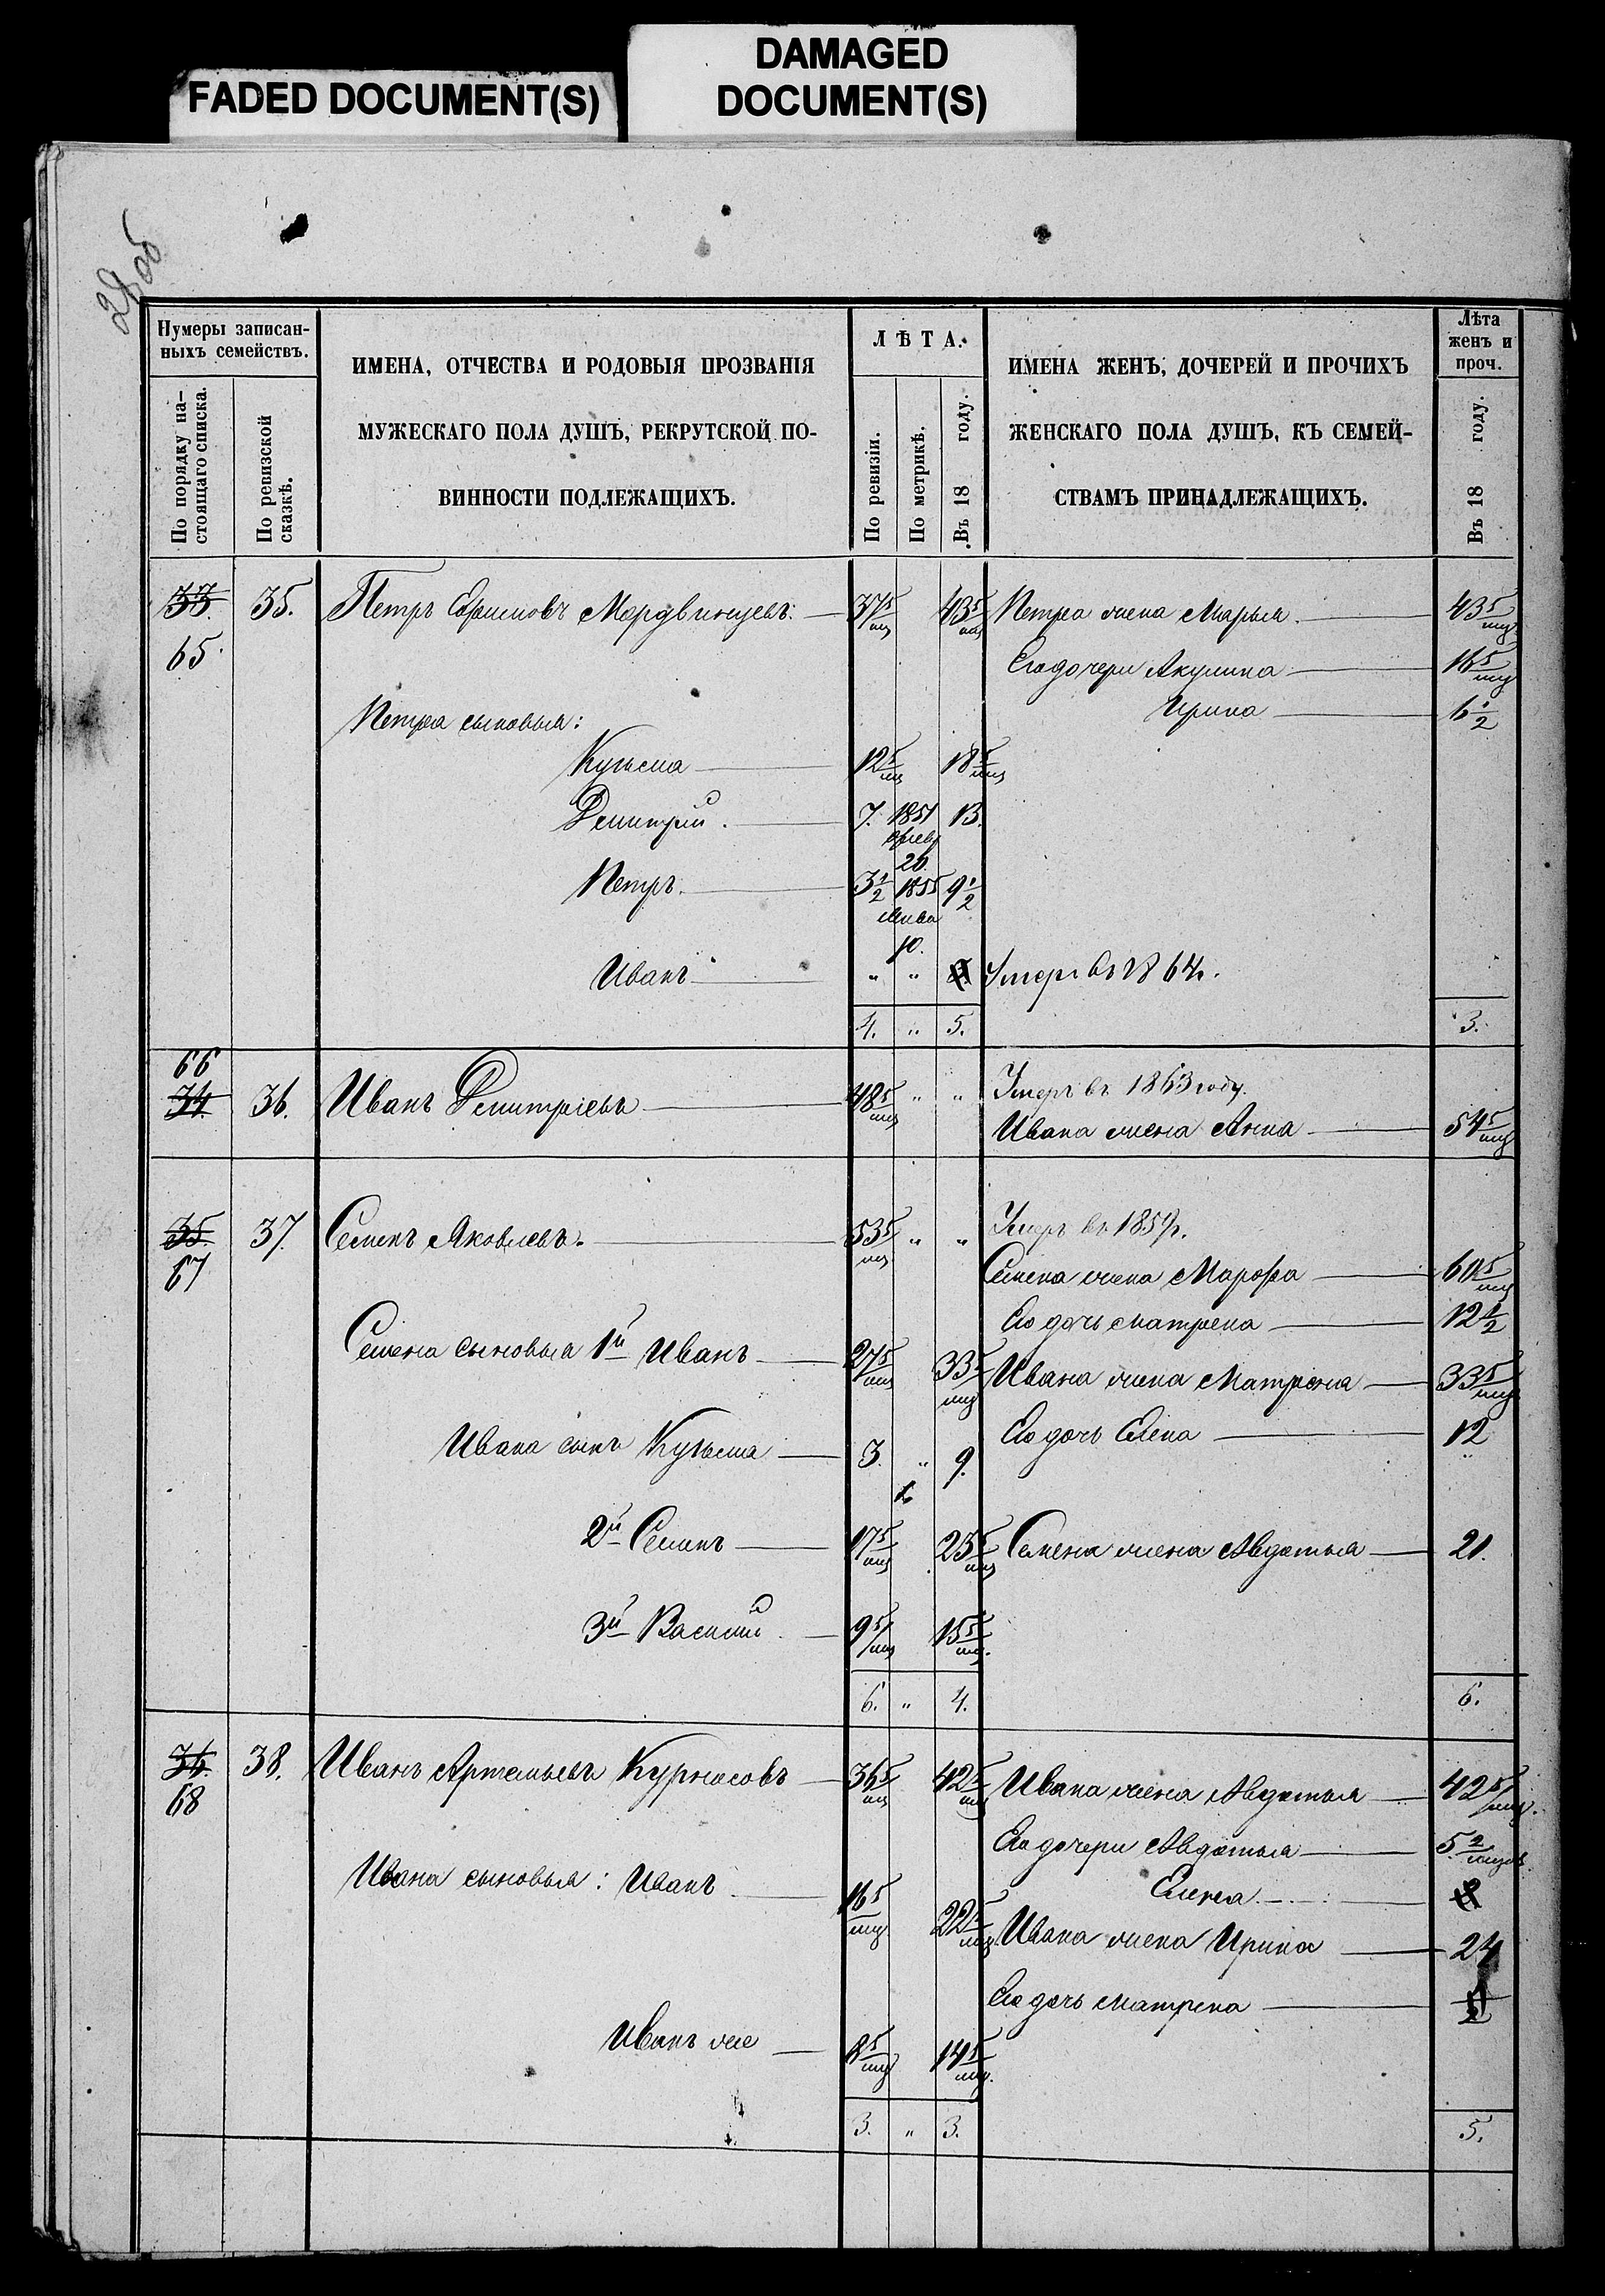 FADED DOCUMENT(S)
DAMAGED
DOCUMENT(S)
28об
Нумеры записан-
ныхъ семействъ.
По порядку на-
стоящаго списка.
По ревизской
сказкѣ.
ИМЕНА, ОТЧЕСТВА И РОДОВЫЯ ПРОЗВАНІЯ
МУЖЕСКАГО ПОЛА ДУШЪ, РЕКРУТСКОЙ ПО-
ВИННОСТИ ПОДЛЕЖАЩИХЪ.
ЛѢТА.
По ревизіи.
По метрикѣ.
Въ 18 году.
ИМЕНА ЖЕНЪ, ДОЧЕРЕЙ И ПРОЧИХЪ
ЖЕНСКАГО ПОЛА ДУШЪ, КЪ СЕМЕЙ-
СТВАМЪ ПРИНАДЛЕЖАЩИХЪ.
Лѣта
женъ и
проч.
Въ 18 году.
33. 35. Петръ Ефимовъ Мордвинцевъ: 37 5/мц 43 5/мц Петра жена Марья. 43 5/мц
65. Его дочери Акулина 16 5/мц
Ирина 6 1/2
Петра сыновья:
Кузьма 12 5/мц 18 5/мц
Демитрій. 7. 1851 13.
26.
Петръ. 3 1/2 1855 9 1/2
10.
Иванъ " " Умеръ въ 1864г.
4. " 5. 3.
66
34. 36. Иванъ Демитріевъ 48 5/мц " " Умеръ въ 1863 году.
Ивана жена Анна 54 5/мц
35. 37. Семенъ Яковлевъ. 53 5/мц " " Умеръ въ 1859г.
67 Семена жена Марфа 60 5/мц
Его дочь Матрена 12 1/2
Семена сыновья 1й Иванъ 27 5/мц 33 5/мц Ивана жена Матрена 33 5/мц
Его дочь Елена 12
Ивана сынъ Кузьма 3. " 9.
2й Семенъ 17 5/мц 23 5/мц Семена жена Авдотья 21.
3й Василій 9 5/мц 15 5/мц.
6. " 4. 6.
36. 38. Иванъ Артемьевъ Курносовъ 36 5/мц 42 5/мц Ивана жена Авдотья 42 5/мц.
68
Его дочери Авдотья 5. 2/мцов.
Ивана сыновья: Иванъ 16 5/мц 22 5/мц Елена.
Ивана жена Ирина 24
Его дочь Матрена
Иванъ же 8 5/мц 14 5/мц.
3. " 3. 5.